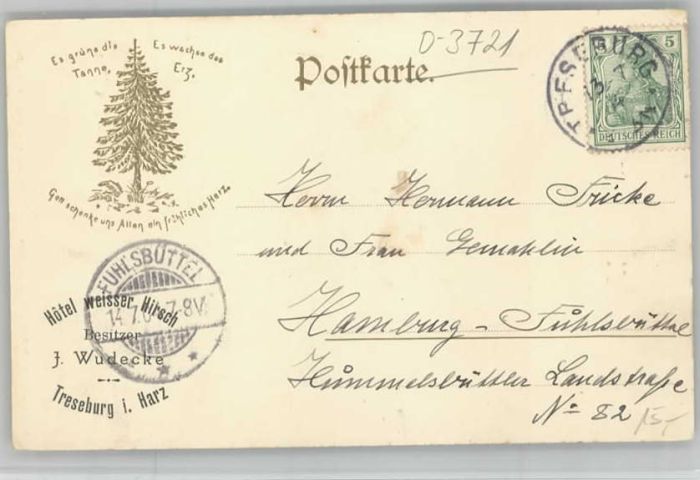 Es grüne die Tanne,
Es wachse das Erz,
Gott schenke uns Allen ein fröhliches Herz.
Postkarte.
D-3721
TRESEBURG
13 7
5
DEUTSCHES REICH
Herrn Hermann Fricke
und Frau Gemahlin
Hamburg - Fuhlsbüttel
Hummelsbüttler Landstraße
No 82
15,-
FUHLSBÜTTEL
14.7. 7-8V.
Hôtel weisser Hirsch
Besitzer
J. Wudecke
Treseburg i. Harz